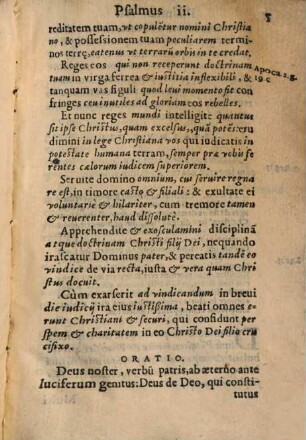 Psalmus ii. 5
reditatem tuam, ut copulẽtur nomini Christia
no, & possessionem tuam peculiarem termi-
nos terrę, eatenus ut terrarũ orbis in te credat.
Reges eos qui non receperunt doctrinam
tuam in virga ferrea & iustitia inflexibili, &
tanquam vas figuli quod luei momento fit con
fringes ceu inutiles ad gloriam eos rebelles.
Apoca 2.g.
& 19 c
Et nunc reges mundi intelligite quantus
sit ipse Christus, quam excelsus, quã potẽs: eru
dimini in lege Christiana vos qui iudicatis in
potestate humana terram, semper præ vobis fe
rentes cælorum iudicem superiorem.
Seruite domino omnium, cui seruire regna
re est, in timore casto & filiali: & exultate ei
voluntariè & hilariter, cum tremore tamen
& reuerenter, haud dissolutè.
Apprehendite & exosculamini disciplinã
atque doctrinam Christi filij Dei, nequando
irascatur Dominus pater, & pereatis tandẽ eo
vindice de via recta, iusta & vera quam Chri
stus docuit.
Cùm exarserit ad vindicandum in breui
die iudicij ira eius iustissima, beati omnes e-
runt Christiani & securi, qui confidunt per
spem & charitatem in eo Christo Dei filio cru
cifixo.
ORATIO.
Deus noster, verbũ patris, ab æterno ante
luciferum genitus: Deus de Deo, qui consti-
tutus